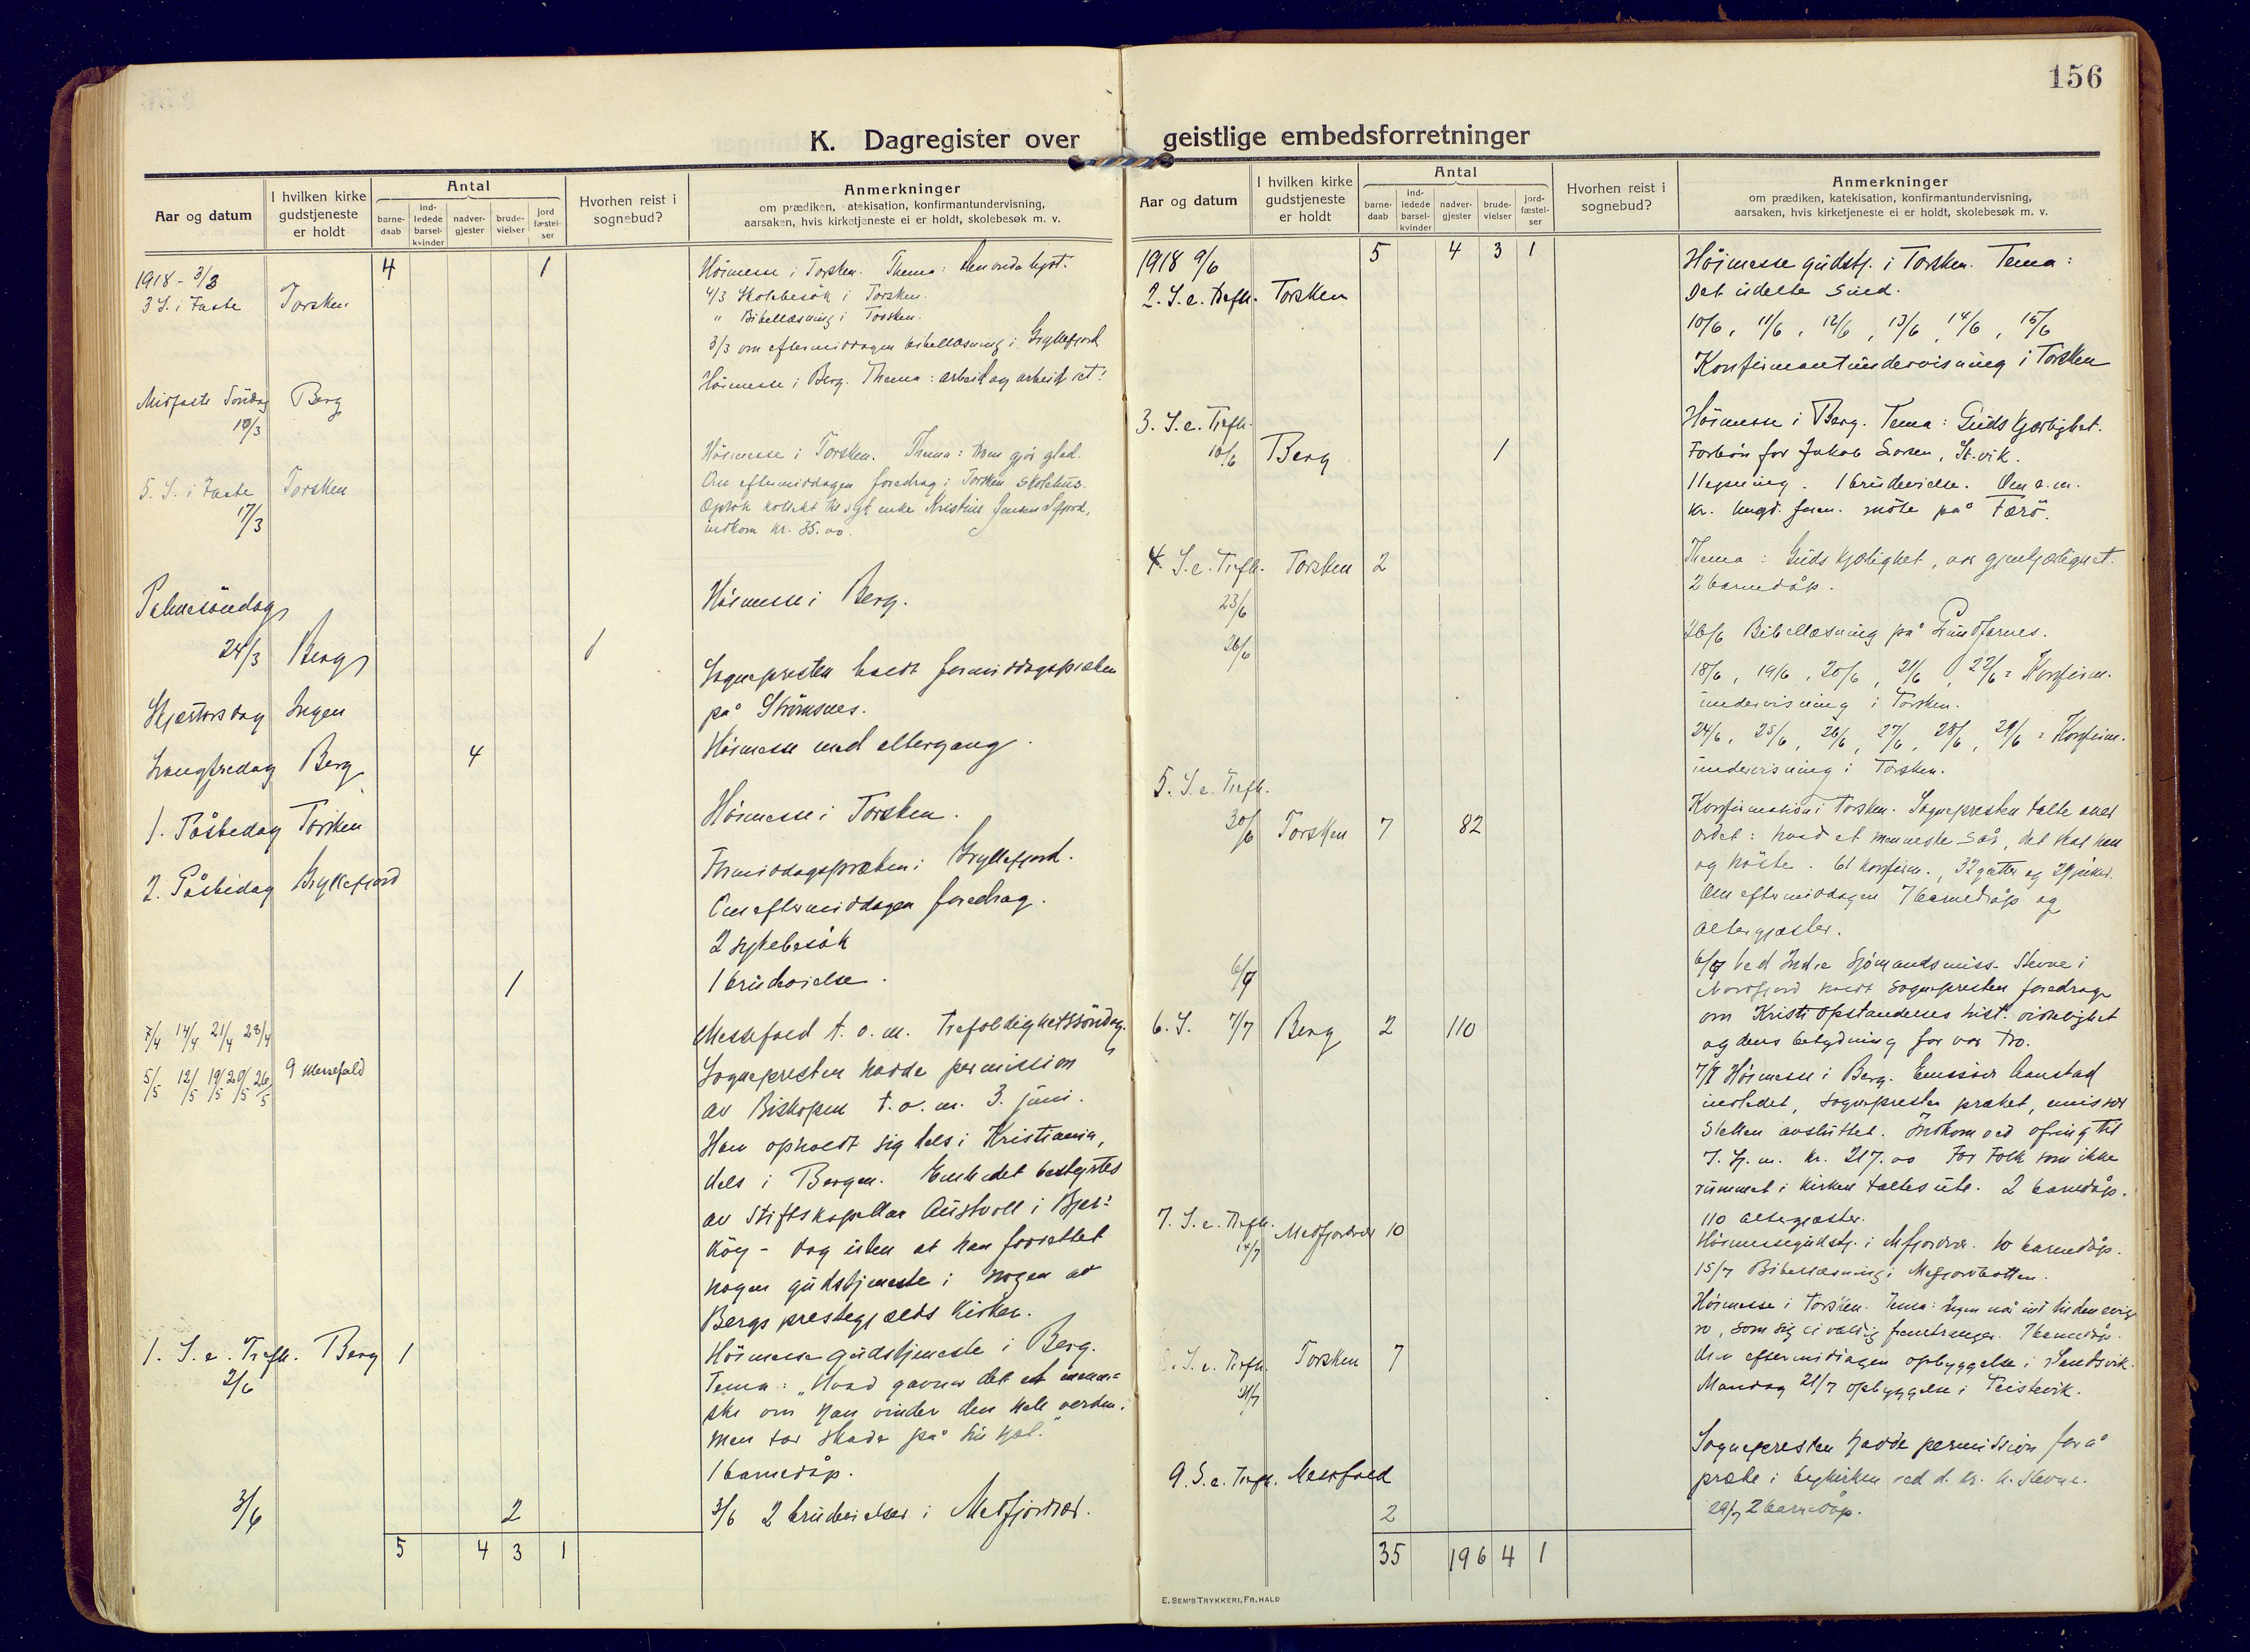 156
K. Dagregister over geistlige embedsforretninger
Aar og datum
I hvilken kirke gudstjeneste er holdt
Antal
barne-daab
ind-ledede barsel-kvinder
nadver-gjester
brude-vielser
jord fæstel-ser
Hvorhen reist i sognebud?
Anmerkninger
om prædiken, atekisation, konfirmantundervisning,
aarsaken, hvis kirketjeneste ei er holdt, skolebesøk m. v.
1918 - 3/3 4 1 Høimesse i Torsken. Thema: Den onde lyst.
3 S. i Faste Torsken 4/3 Skolebesøk i Torsken.
" Bibellæsning i Torsken.
3/3 om eftermiddagen bibellæsning i Gryllefjord
Høimesse i Berg. Thema: arbeid og arbeid ret!
Midfaste Søndag Berg
10/3
Høimesse i Torsken. Thema: gjør glad.
5. S. i Faste Torsken Om eftermiddagen foredrag i Torsken skolehus.
17/3 Optok kollekt til enke Kristine Jensen
indkom kr. 35.00.
Palmesøndag Høimesse i Berg.
24/3 Berg 1
Sognepresten holdt formiddagspræken
Skjærtorsdag Ingen på Strømsnes.
Langfredag Berg 4 Høimesse med altergang.
1. Påskedag Torsken Høimesse i Torsken.
2. Påskedag Gryllefjord Formiddagspræken i Gryllefjord.
Om eftermiddagen foredrag.
2 sykebesøk
1 1 brudevielse.
7/4 14/4 21/4 28/4 Messefald t. o. m. Trefoldighetssøndag.
5/5 12/5 19/5 20/5 26/5 9 Messefald Sognepresten hadde permission
av Biskopen t. o. m. 3. juni.
Han opholdt sig dels i Kristiania,
dels i Bergen. Embedet bestyrtes
av Stiftskapellan Austvoll i Bjar-
køy - dog uten at han forrettet
nogen gudstjeneste i nogen av
Bergs prestegjælds kirker.
1. S. e. Trefh. Berg 1 Høimessegudstjeneste i Berg.
2/6 Tema: „Hvad gavner det et menne-
ske om han vinder den hele verden,
men tar skade på sin sjæl."
1 barnedåp.
3/6 2 3/6 2 brudevielser i Medfjordvær.
5 4 3 1
Aar og datum
I hvilken kirke gudstjeneste er holdt
Antal
barne-daab
ind-ledede barsel-kvinder
nadver-gjester
brude-vielser
jord-fæstel-ser
Hvorhen reist i sognebud?
Anmerkninger
om prædiken, katekisation, konfirmantundervisning,
aarsaken, hvis kirketjeneste ei er holdt, skolebesøk m. v.
1918 9/6 5 4 3 1 Høimessegudstj. i Torsken. Tema:
2. S. e. Trefh. Torsken Det udelte sind.
10/6, 11/6, 12/6, 13/6, 14/6, 15/6
Konfirmantundervisning i Torsken
3. S. e. Trefh. Høimesse i Berg. Tema: Guds kjærlighet.
16/6 Berg 1 Forbøn for Jakob Larsen, St.vik.
1 lysning. 1 brudevielse. Om e.m.
kr. ungd. foren. møte på Færø.
4. S. e. Trefh. Torsken 2 Thema: Guds kjærlighet, vor gjenkjærlighet.
23/6 2 barnedåp.
26/6 26/6 Bibellæsning på Grundfarnes.
18/6, 19/6, 20/6, 21/6, 22/6 = Konfirm.
undervisning i Torsken.
24/6, 25/6, 26/6, 27/6, 28/6, 29/6 = Konfirm.
undervisning i Torsken.
5. S. e. Trefh.
30/6 Torsken 7 82 Konfirmation i Torsken. Sognepresten talte over
ordet: hvad et menneske sår, det skal han
og høste. 61 konfirm., 32 gutter og 29 piker.
Om eftermiddagen 7 barnedåp og
altergjæster.
6/7 6/7 Ved Indre Sjømandsmiss. Stevne i
Nordfjord holdt sognepresten foredrag
om Kristi Opstandelses hist. virkelighet
og dens betydning for vor tro.
6. S. 7/7 Berg 2 110 7/7 Høimesse i Berg. Emissær Aanstad
indledet, sognepresten præket, emissær
avsluttet. Indkom ved ofring til
I. Sj. m. kr. 217.00 For folk som ikke
rummet i kirken taltes ute. 2 barnedåp.
110 altergjæster.
7. S. e. Trefh. Medfjordvær 10 Høimessegudstj. i Mefjordvær. 10 barnedåp.
14/7 15/7 Bibellæsning i Mefjordbotten.
Høimesse i Torsken. Tema: Ingen når ind til den evige
ro, som sig ei vældig fremtrænger. 7 barnedåp.
8. S. e. Trefh. Torsken 7 Om eftermiddagen opbyggelse i Sandsvik.
21/7 Mandag 21/7 opbyggelse i Teistevik.
Sognepresten hadde permission for å
9. S. e. Trefh. Messfald præke i bykirken ved d. kr. u. stevne.
2 29/7 2 barnedåp.
35 196 4 1
E. SEM'S TRYKKERI, FR.HALD